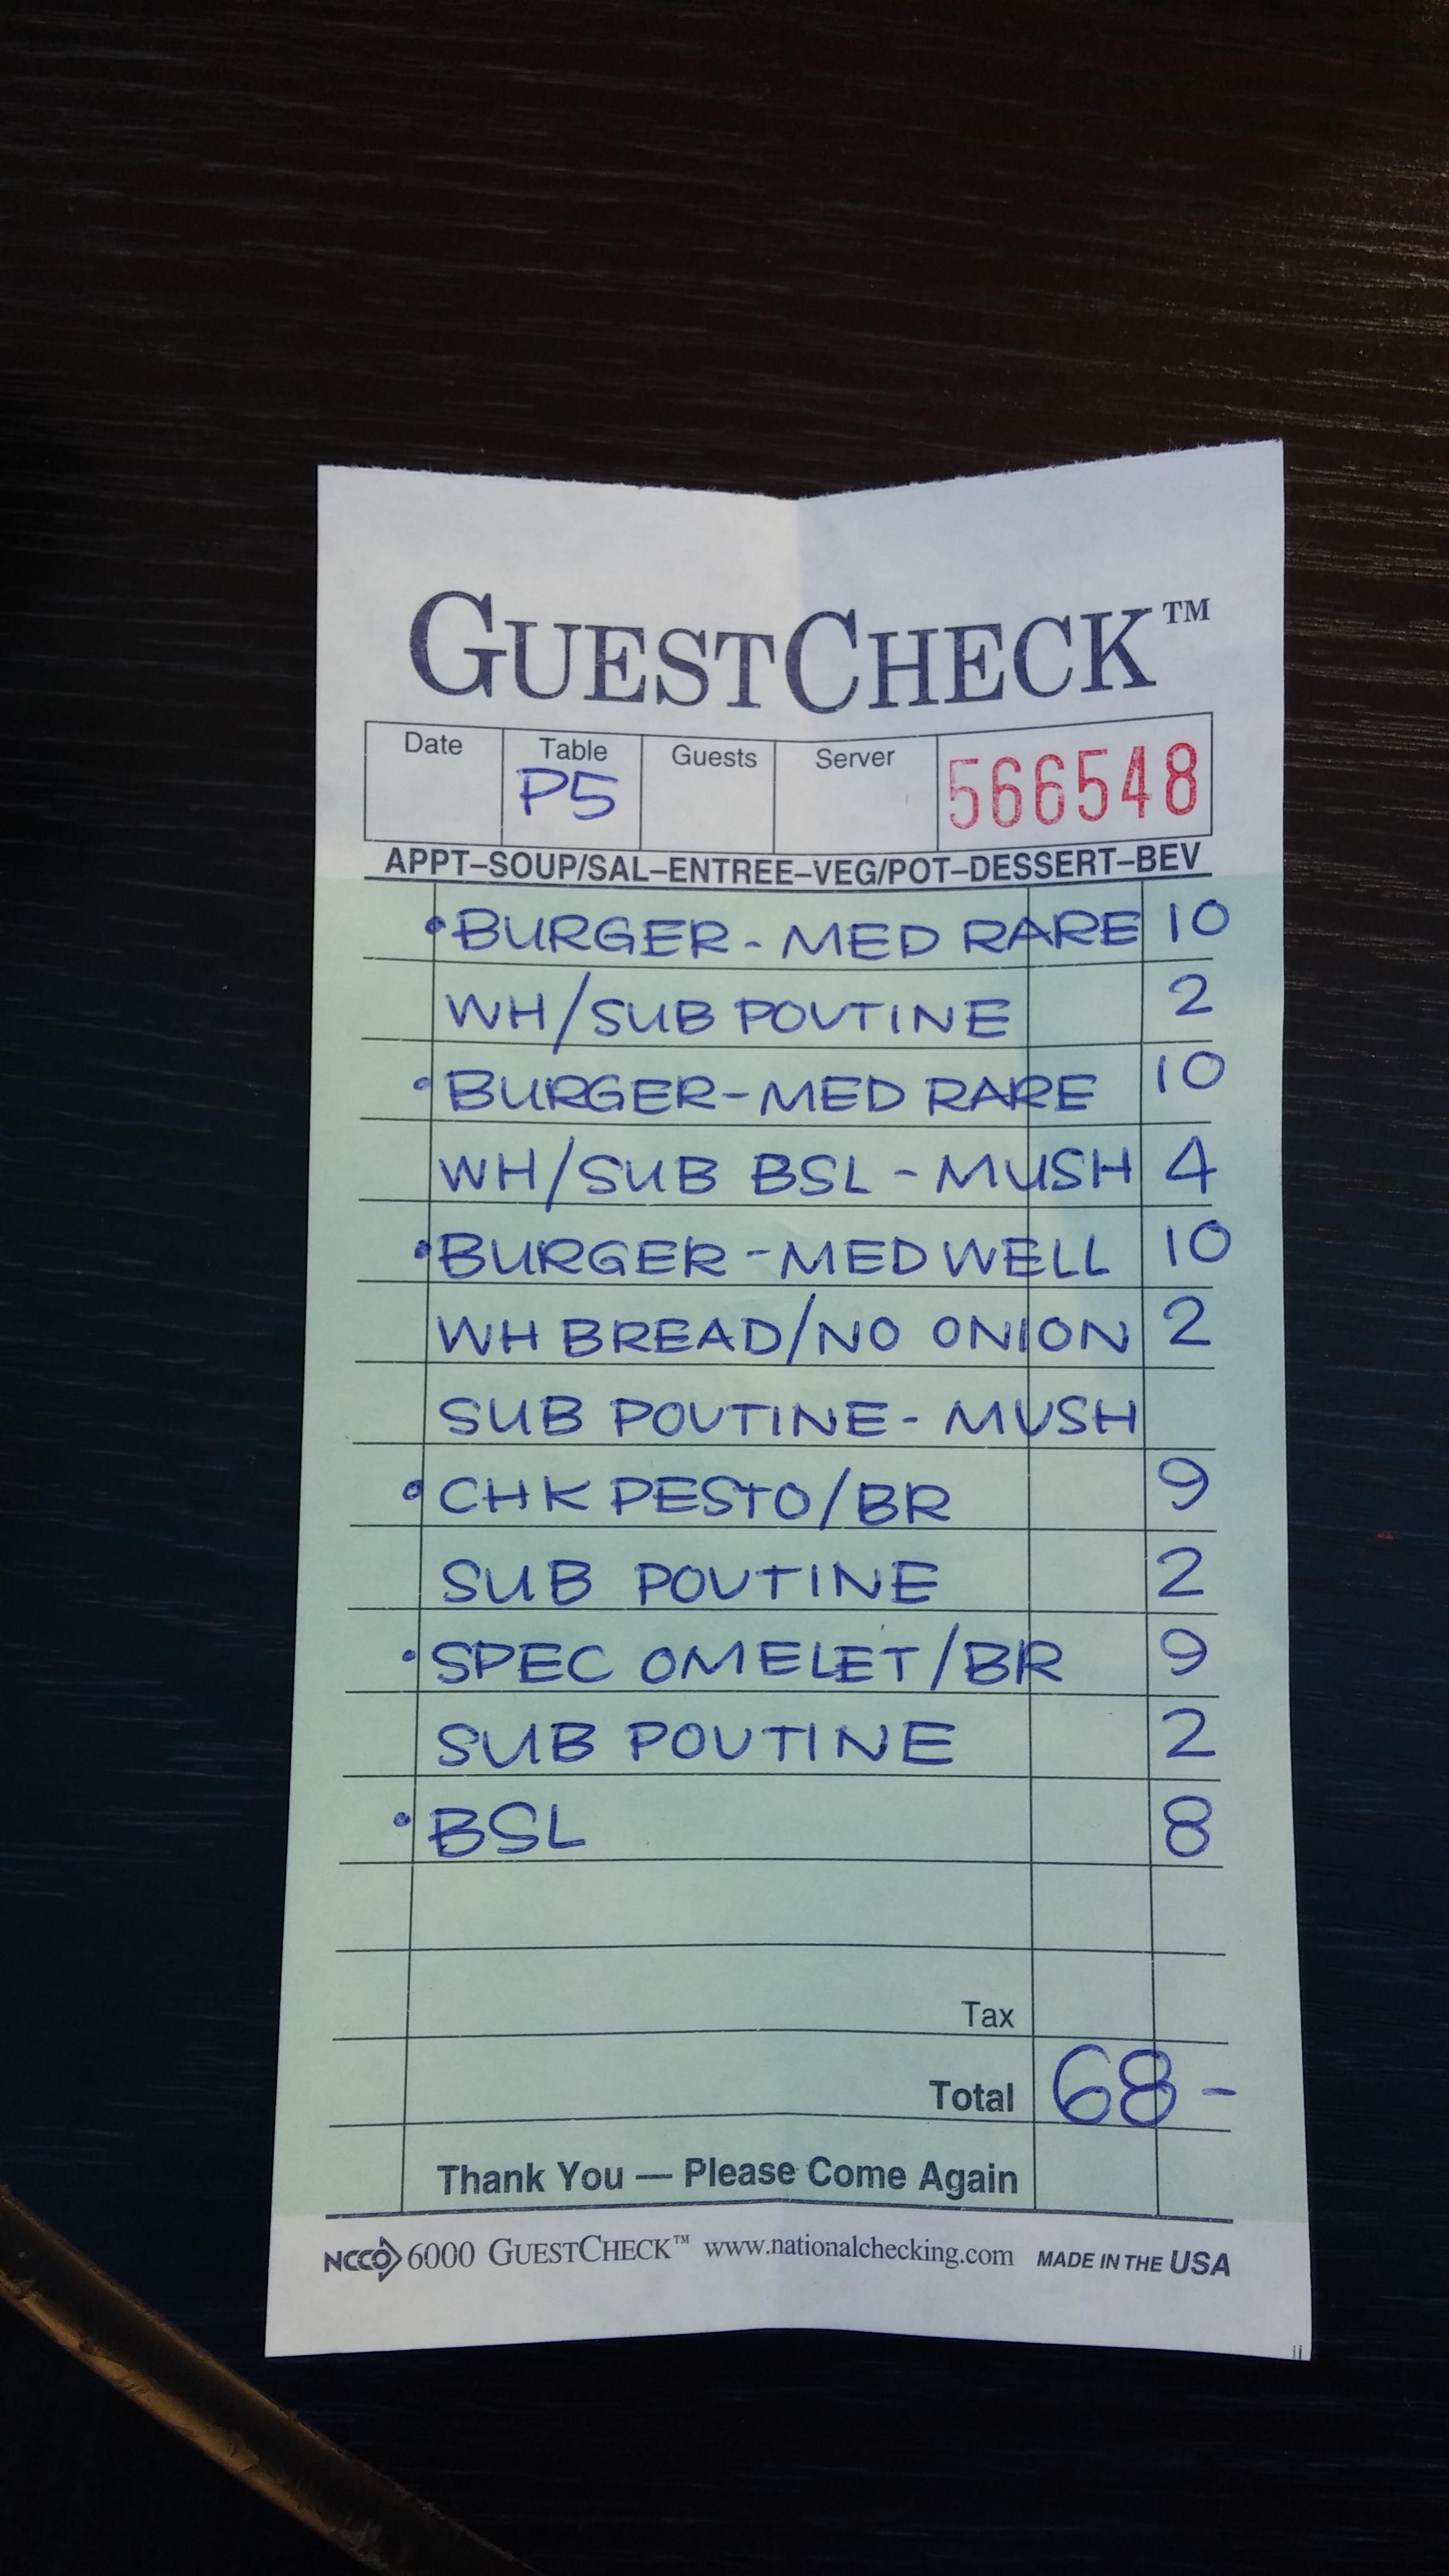 GUESTCHECK™
Date Table Guests Server 566548
P5
APPT–SOUP/SAL–ENTREE–VEG/POT–DESSERT–BEV
• BURGER - MED RARE 10
WH/SUB POUTINE 2
• BURGER - MED RARE 10
WH/SUB BSL - MUSH 4
• BURGER - MED WELL 10
WH BREAD/NO ONION 2
SUB POUTINE - MUSH
• CHK PESTO/BR 9
SUB POUTINE 2
• SPEC OMELET/BR 9
SUB POUTINE 2
• BSL 8
Tax
Total 68 -
Thank You — Please Come Again
NCCO 6000 GUESTCHECK™ www.nationalchecking.com MADE IN THE USA